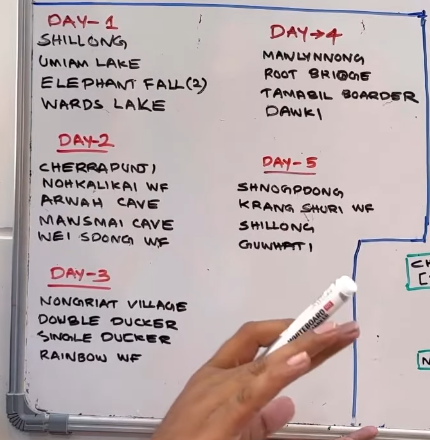 DAY-1
SHILLONG
UMIAM LAKE
ELEPHANT FALL(2)
WARDS LAKE
DAY-2
CHERRAPUNJI
NOHKALIKAI WF
ARWAH CAVE
MAWSMAI CAVE
WEI SDONG WF
DAY-3
NONGRIAT VILLAGE
DOUBLE DUCKER
SINGLE DUCKER
RAINBOW WF
DAY→4
MAWLYNNONG
ROOT BRIDGE
TAMABIL BOARDER
DAWKI
DAY-5
SHNOGPDONG
KRANG SHURI WF
SHILLONG
GUWHATI
WHITEBOARD